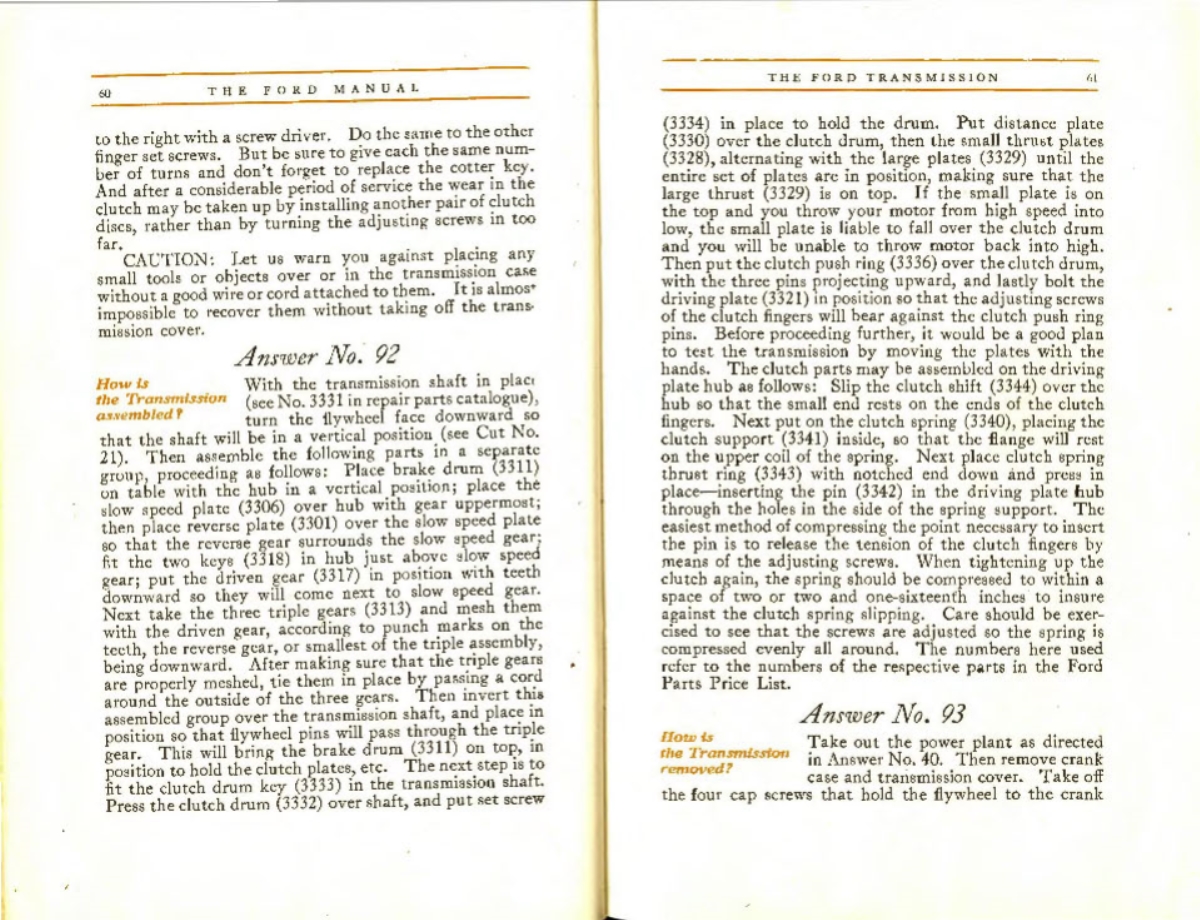 60 THE FORD MANUAL
to the right with a screw driver. Do the same to the other
finger set screws. But be sure to give each the same num-
ber of turns and don't forget to replace the cotter key.
And after a considerable period of service the wear in the
clutch may be taken up by installing another pair of clutch
discs, rather than by turning the adjusting screws in too
far.
CAUTION: Let us warn you against placing any
small tools or objects over or in the transmission case
without a good wire or cord attached to them. It is almost
impossible to recover them without taking off the trans-
mission cover.
Answer No. 92
How is
the Transmission
assembled?
With the transmission shaft in place
(see No. 3331 in repair parts catalogue),
turn the flywheel face downward so
that the shaft will be in a vertical position (see Cut No.
21). Then assemble the following parts in a separate
group, proceeding as follows: Place brake drum (3311)
on table with the hub in a vertical position; place the
slow speed plate (3306) over hub with gear uppermost;
then place reverse plate (3301) over the slow speed plate
so that the reverse gear surrounds the slow speed gear;
fit the two keys (3318) in hub just above slow speed
gear; put the driven gear (3317) in position with teeth
downward so they will come next to slow speed gear.
Next take the three triple gears (3313) and mesh them
with the driven gear, according to punch marks on the
teeth, the reverse gear, or smallest of the triple assembly,
being downward. After making sure that the triple gears
are properly meshed, tie them in place by passing a cord
around the outside of the three gears. Then invert this
assembled group over the transmission shaft, and place in
position so that flywheel pins will pass through the triple
gear. This will bring the brake drum (3311) on top, in
position to hold the clutch plates, etc. The next step is to
fit the clutch drum key (3333) in the transmission shaft.
Press the clutch drum (3332) over shaft, and put set screw
THE FORD TRANSMISSION 61
(3334) in place to hold the drum. Put distance plate
(3330) over the clutch drum, then the small thrust plates
(3328), alternating with the large plates (3329) until the
entire set of plates are in position, making sure that the
large thrust (3329) is on top. If the small plate is on
the top and you throw your motor from high speed into
low, the small plate is liable to fall over the clutch drum
and you will be unable to throw motor back into high.
Then put the clutch push ring (3336) over the clutch drum,
with the three pins projecting upward, and lastly bolt the
driving plate (3321) in position so that the adjusting screws
of the clutch fingers will bear against the clutch push ring
pins. Before proceeding further, it would be a good plan
to test the transmission by moving the plates with the
hands. The clutch parts may be assembled on the driving
plate hub as follows: Slip the clutch shift (3344) over the
hub so that the small end rests on the ends of the clutch
fingers. Next put on the clutch spring (3340), placing the
clutch support (3341) inside, so that the flange will rest
on the upper coil of the spring. Next place clutch spring
thrust ring (3343) with notched end down and press in
place—inserting the pin (3342) in the driving plate hub
through the holes in the side of the spring support. The
easiest method of compressing the point necessary to insert
the pin is to release the tension of the clutch fingers by
means of the adjusting screws. When tightening up the
clutch again, the spring should be compressed to within a
space of two or two and one-sixteenth inches to insure
against the clutch spring slipping. Care should be exer-
cised to see that the screws are adjusted so the spring is
compressed evenly all around. The numbers here used
refer to the numbers of the respective parts in the Ford
Parts Price List.
Answer No. 93
How is
the Transmission
removed?
Take out the power plant as directed
in Answer No. 40. Then remove crank
case and transmission cover. Take off
the four cap screws that hold the flywheel to the crank